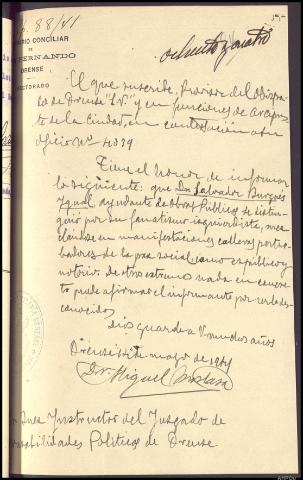 88/41
ochenta y cuatro
SEMINARIO CONCILIAR
DE
S. FERNANDO
ORENSE
RECTORADO
El que suscribe, Provisor del Obispa-
do de Orense "S.V." y en funciones de Arcipres-
te de la Ciudad, en contestación a su
oficio nº 4039
Tiene el honor de informar
lo siguiente: que Dn Salvador Burgos
ayudante de Obras Públicas se distin-
guió por su fanatismo izquierdista, mez-
clándose en manifestaciones callejeras pertur-
badoras de la paz social como es público y
notorio: de otro extremo nada en concre-
to puede afirmar el informante por serle des-
conocido.
Dios guarde a V. muchos años
Orense de mayo de 1941
Dr. Miguel
Juez Instructor del Juzgado de
Responsabilidades Políticas de Orense